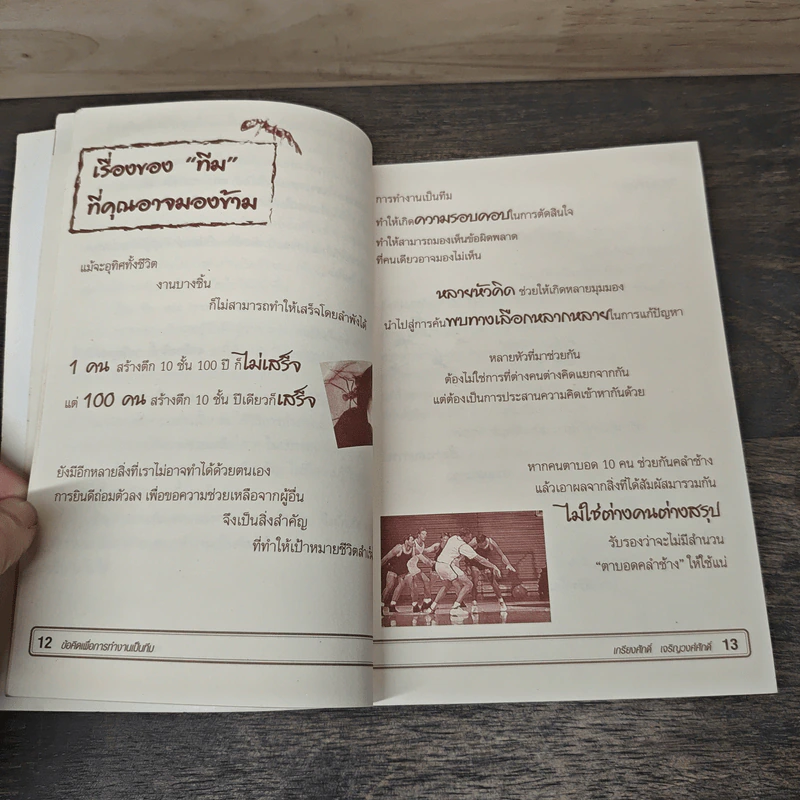 เรื่องของ "ทีม"
ที่คุณอาจมองข้าม
แม้จะอุทิศทั้งชีวิต
งานบางชิ้น
ก็ไม่สามารถทำให้เสร็จโดยลำพังได้
1 คน สร้างตึก 10 ชั้น 100 ปี ก็ไม่เสร็จ
แต่ 100 คน สร้างตึก 10 ชั้น ปีเดียวก็เสร็จ
ยังมีอีกหลายสิ่งที่เราไม่อาจทำได้ด้วยตนเอง
การยินดีถ่อมตัวลง เพื่อขอความช่วยเหลือจากผู้อื่น
จึงเป็นสิ่งสำคัญ
ที่ทำให้เป้าหมายชีวิตสำเร็จ
12 ข้อคิดเพื่อการทำงานเป็นทีม
การทำงานเป็นทีม
ทำให้เกิดความรอบคอบในการตัดสินใจ
ทำให้สามารถมองเห็นข้อผิดพลาด
ที่คนเดียวอาจมองไม่เห็น
หลายหัวคิด ช่วยให้เกิดหลายมุมมอง
นำไปสู่การค้นพบทางเลือกหลากหลายในการแก้ปัญหา
หลายหัวที่มาช่วยกัน
ต้องไม่ใช่การที่ต่างคนต่างคิดแยกจากกัน
แต่ต้องเป็นการประสานความคิดเข้าหากันด้วย
หากคนตาบอด 10 คน ช่วยกันคลำช้าง
แล้วเอาผลจากสิ่งที่ได้สัมผัสมารวมกัน
ไม่ใช่ต่างคนต่างสรุป
รับรองว่าจะไม่มีสำนวน
"ตาบอดคลำช้าง" ให้ใช้แน่
เกรียงศักดิ์ เจริญวงศ์ศักดิ์ 13